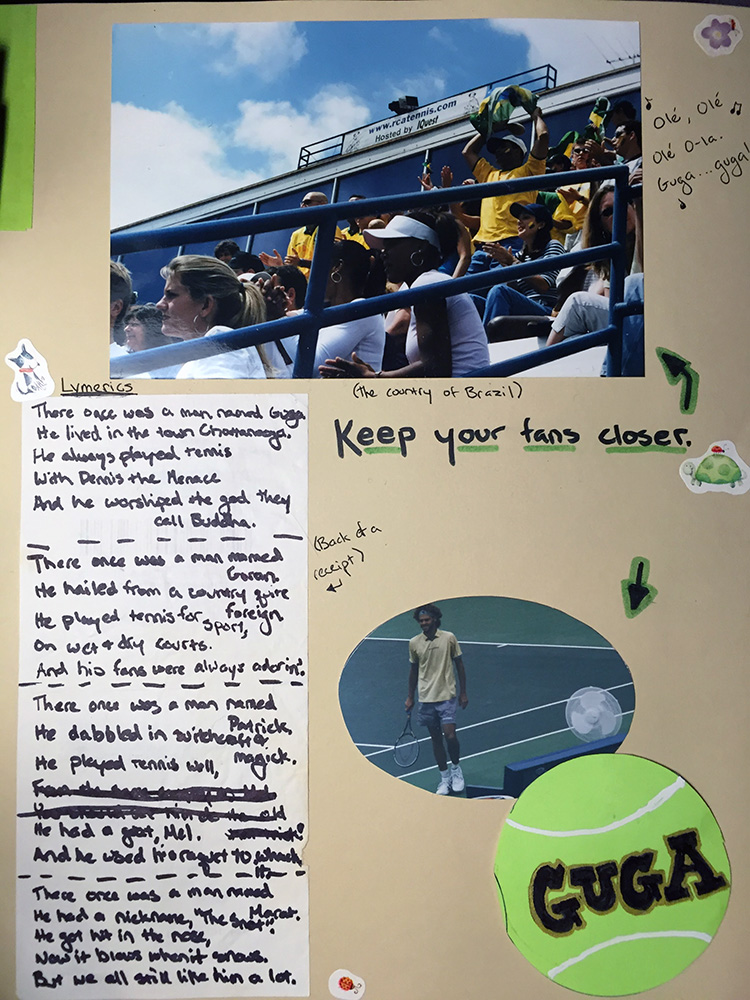 www.rcatennis.com
Hosted by IQuest
Olé, Olé
Olé O-la.
Guga...guga!
(The country of Brazil)
Keep your fans closer.
Lymerics
There once was a man named Guga.
He lived in the town Chattanooga.
He always played tennis
With Dennis the Menace
And he worshiped the god they
call Buddha.
There once was a man named
Goran.
He hailed from a country quite
foreign
He played tennis for sport,
On wet & dry courts.
And his fans were always adorin'.
There once was a man named
Patrick.
He dabbled in witchcraft &
magick.
He played tennis well,
He had a goat, Mel.
And he used his raquet to
There once was a man named
Marat.
He had a nickname, "The Snot".
He got hit in the nose,
Now it blows when it snows.
But we all still like him a lot.
(Back of a
receipt)
GUGA